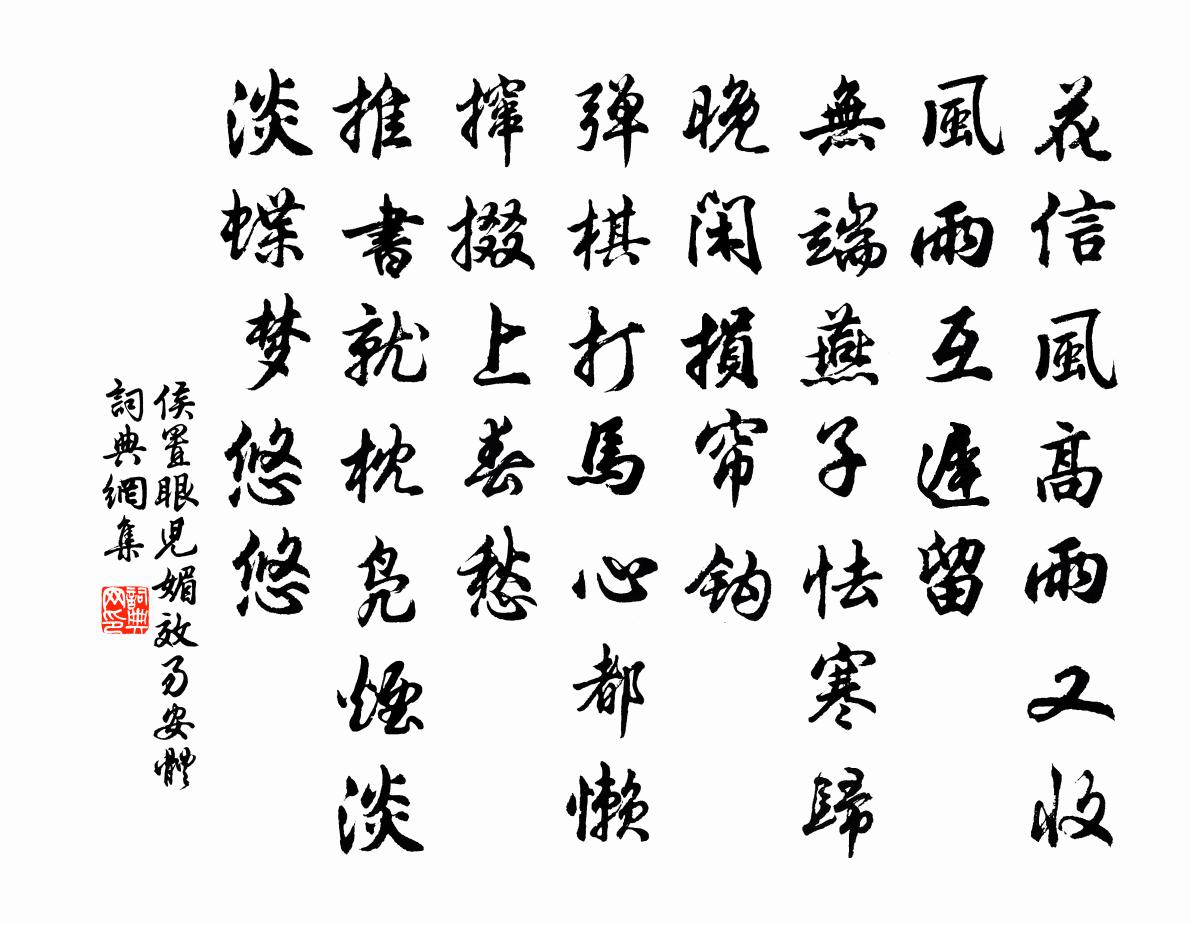 花信風高雨又收
風雨互遲留
無端燕子怯寒歸
晚閑損帘鈎
弹棋打馬心都懶
撺掇上春愁
推書就枕凫煙淡
淡蝶梦悠悠
侯置眼兒媚效易安體
詞典網集
詞典网印